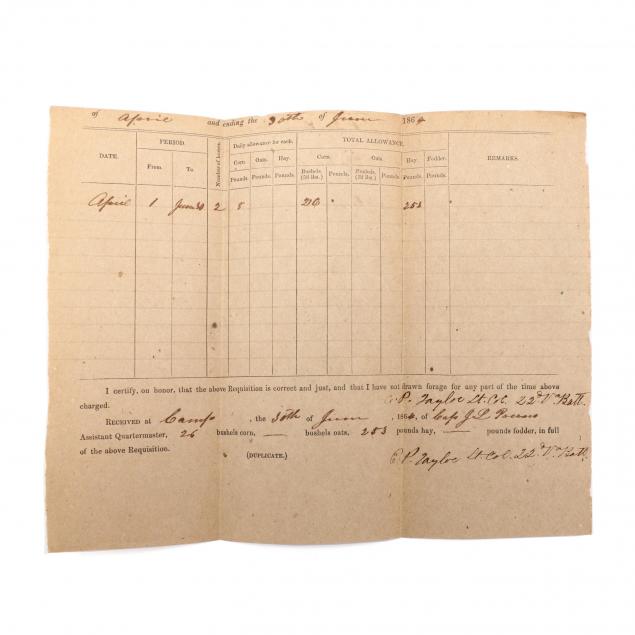 of April and ending the 30th of June 1864
DATE. PERIOD. Number of horses. Daily allowance for each. TOTAL ALLOWANCE. REMARKS.
From. To. Corn. Oats. Hay. Corn. Oats. Hay. Fodder.
Pounds. Pounds. Pounds. Bushels. (56 lbs.) Pounds. Bushels. (32 lbs.) Pounds. Pounds. Pounds.
April 1 June 30 2 8 26 253
I certify, on honor, that the above Requisition is correct and just, and that I have not drawn forage for any part of the time above
charged. E. P. Tayloe Lt. Col. 22d Va Batt.
RECEIVED at Camp, the 30th of June, 1864, of Capt J L
Assistant Quartermaster, 26 bushels corn, — bushels oats, 253 pounds hay, — pounds fodder, in full
of the above Requisition. (DUPLICATE.) E P. Tayloe Lt. Col. 22d Va Batt.